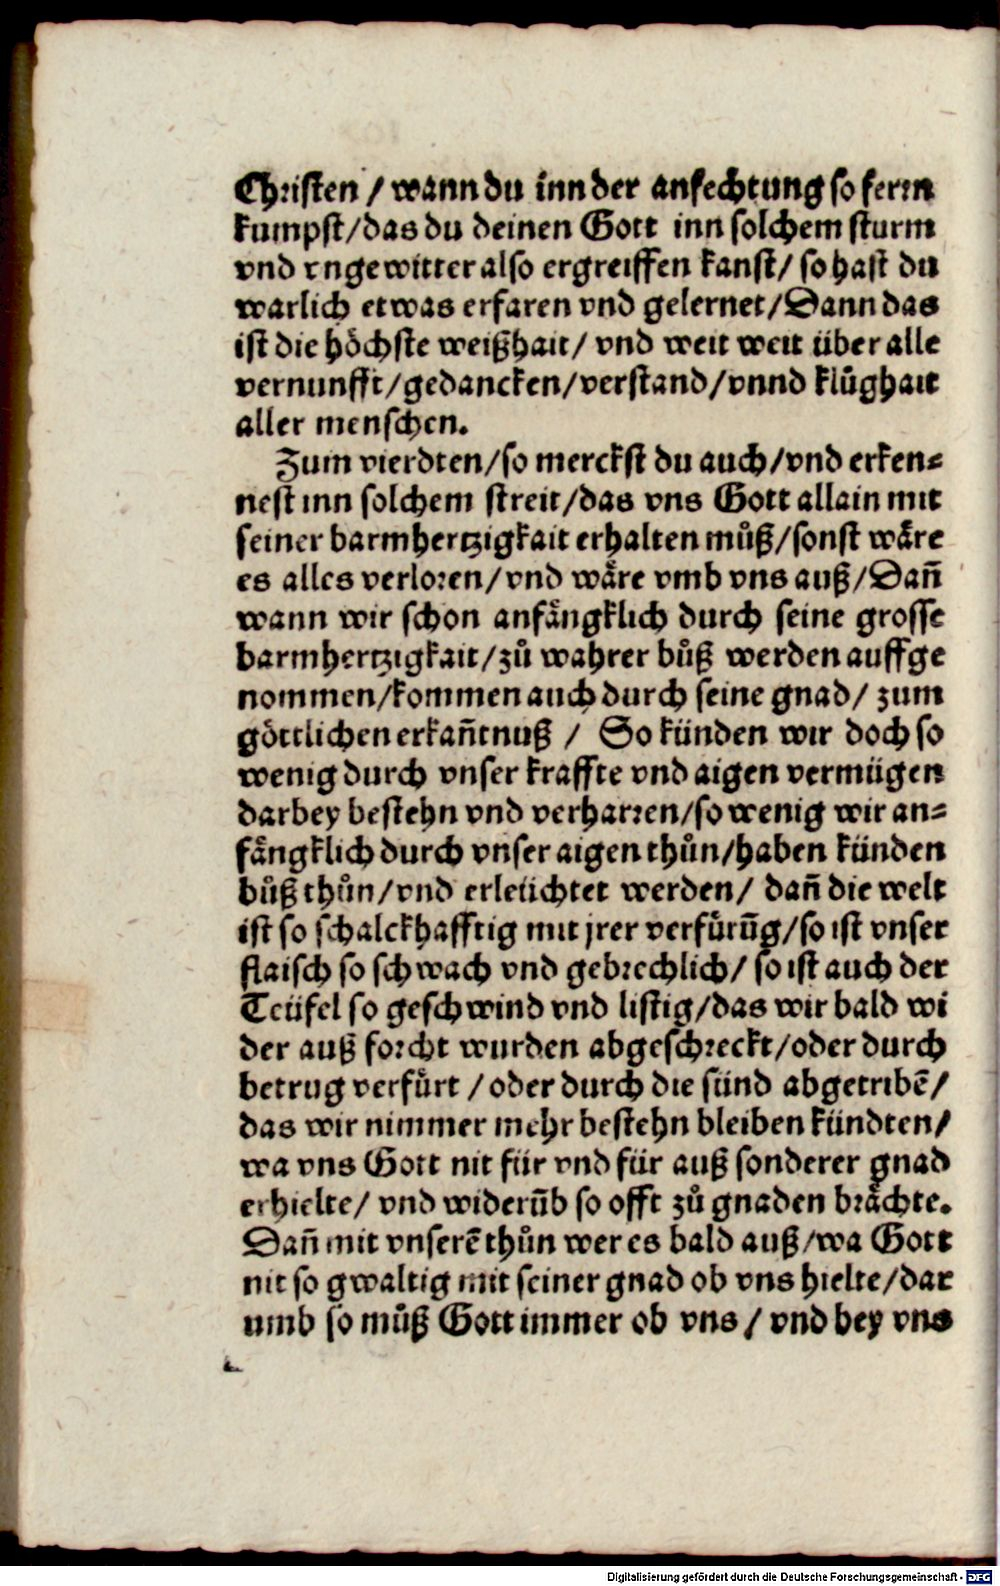 Christen / wann du inn der anfechtung so ferrn
kumpst/das du deinen Gott inn solchem sturm
vnd vngewitter also ergreiffen kanst/ so hast du
warlich etwas erfaren vnd gelernet/Dann das
ist die höchste weißhait/ vnd weit weit über alle
vernunfft/gedancken/verstand/vnnd klůghait
aller menschen.
Zum vierdten/so merckst du auch/vnd erken⸗
nest inn solchem streit/das vns Gott allain mit
seiner barmhertzigkait erhalten můß/sonst wåre
es alles verloren/vnd wåre vmb vns auß/Dañ
wann wir schon anfångklich durch seine grosse
barmhertzigkait/zů wahrer bůß werden auffge
nommen/kommen auch durch seine gnad/ zum
göttlichen erkañtnuß / So künden wir doch so
wenig durch vnser kraffte vnd aigen vermügen
darbey bestehn vnd verharren/so wenig wir an⸗
fångklich durch vnser aigen thůn/haben künden
bůß thůn/vnd erleüchtet werden/ dañ die welt
ist so schalckhafftig mit jrer verfürūg/so ist vnser
flaisch so schwach vnd gebrechlich/ so ist auch der
Teüfel so geschwind vnd listig/das wir bald wi
der auß forcht wurden abgeschreckt/oder durch
betrug verfürt /oder durch die sünd abgetribē/
das wir nimmer mehr bestehn bleiben kündten/
wa vns Gott nit für vnd für auß sonderer gnad
erhielte/ vnd widerūb so offt zů gnaden bråchte.
Dañ mit vnserē thůn wer es bald auß/wa Gott
nit so gwaltig mit seiner gnad ob vns hielte/dar
umb so můß Gott immer ob vns / vnd bey vns
Digitalisierung gefördert durch die Deutsche Forschungsgemeinschaft - DFG